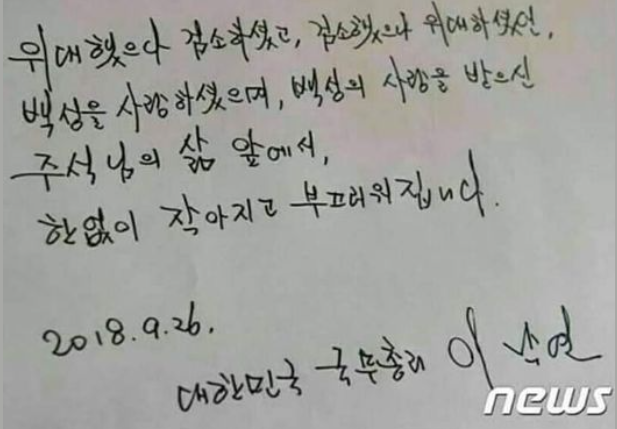 위대했으나 검소하셨고, 검소했으나 위대하셨던,
백성을 사랑하셨으며, 백성의 사랑을 받으신
주석님의 삶 앞에서,
한없이 작아지고 부끄러워집니다.
2018.9.26.
대한민국 국무총리 이낙연
news